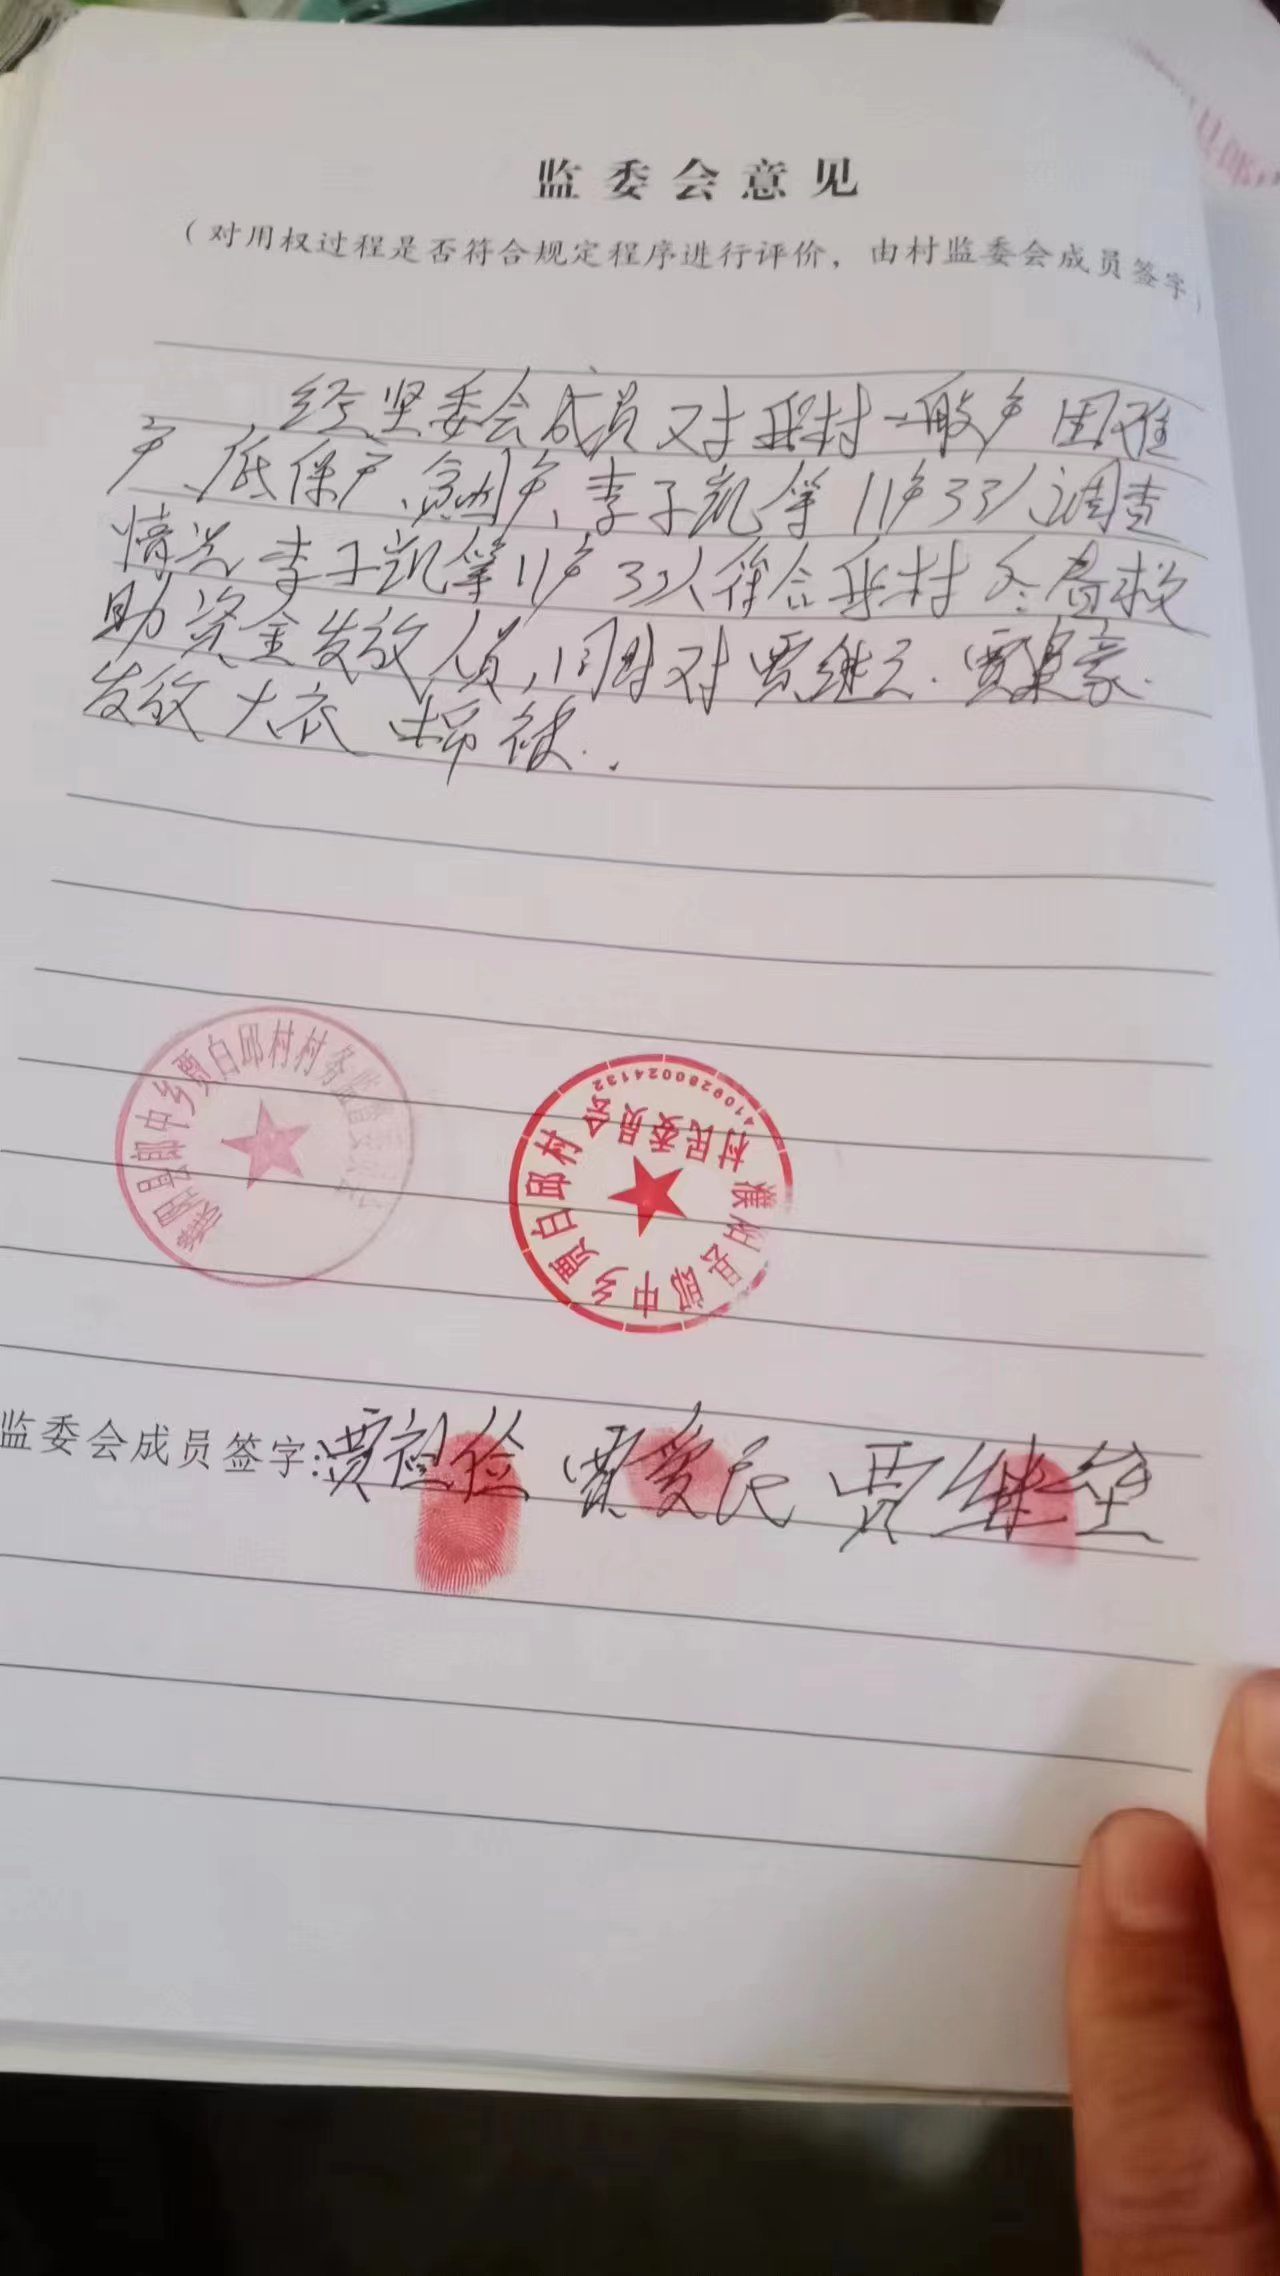 监委会意见
（对用权过程是否符合规定程序进行评价，由村监委会成员签字）
经监委会成员对我村一般户困难
户、低保户、贫困户、李子凯等11户33人调查
情况李子凯等11户33人符合我村冬春救
助资金发放人员，同时对贾继云.贾
发放大衣棉被.
濮阳县郎中乡贾白邱村村务监督委员会
濮阳县郎中乡贾白邱村
村民委员会
4109280024132
监委会成员签字:贾 俭 贾爱民 贾继